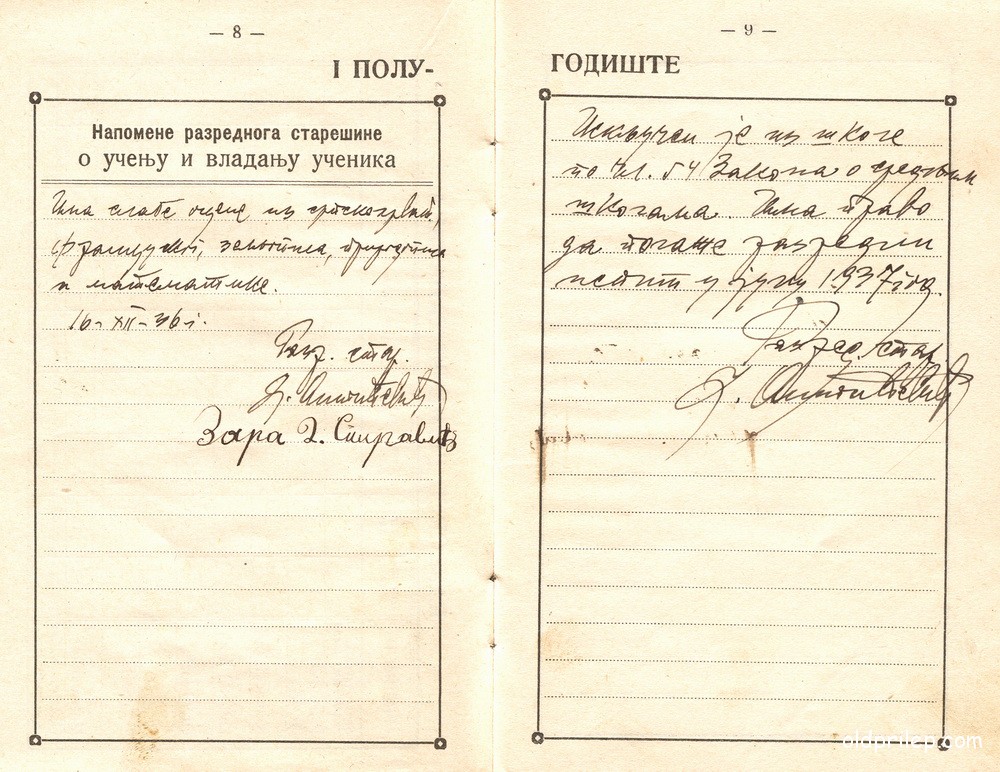 — 8 —
I ПОЛУ-
Напомене разреднога старешине
о учењу и владању ученика
Има слабе оцене из српскохрват.,
француског,
и математике.
16-XII-36 г.
Раз. стар.
Зара
— 9 —
ГОДИШТЕ
Искључен је из школе
по чл. 54 Закона о средњим
школама. Има право
да полаже разредни
испит у јуну 1937 год.
Разред. стар.
oldprilep.com